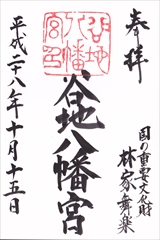 奉拝
国の重要文化財
林家舞楽
谷地八幡宮
谷地八幡宮印
平成二十八年十月十五日